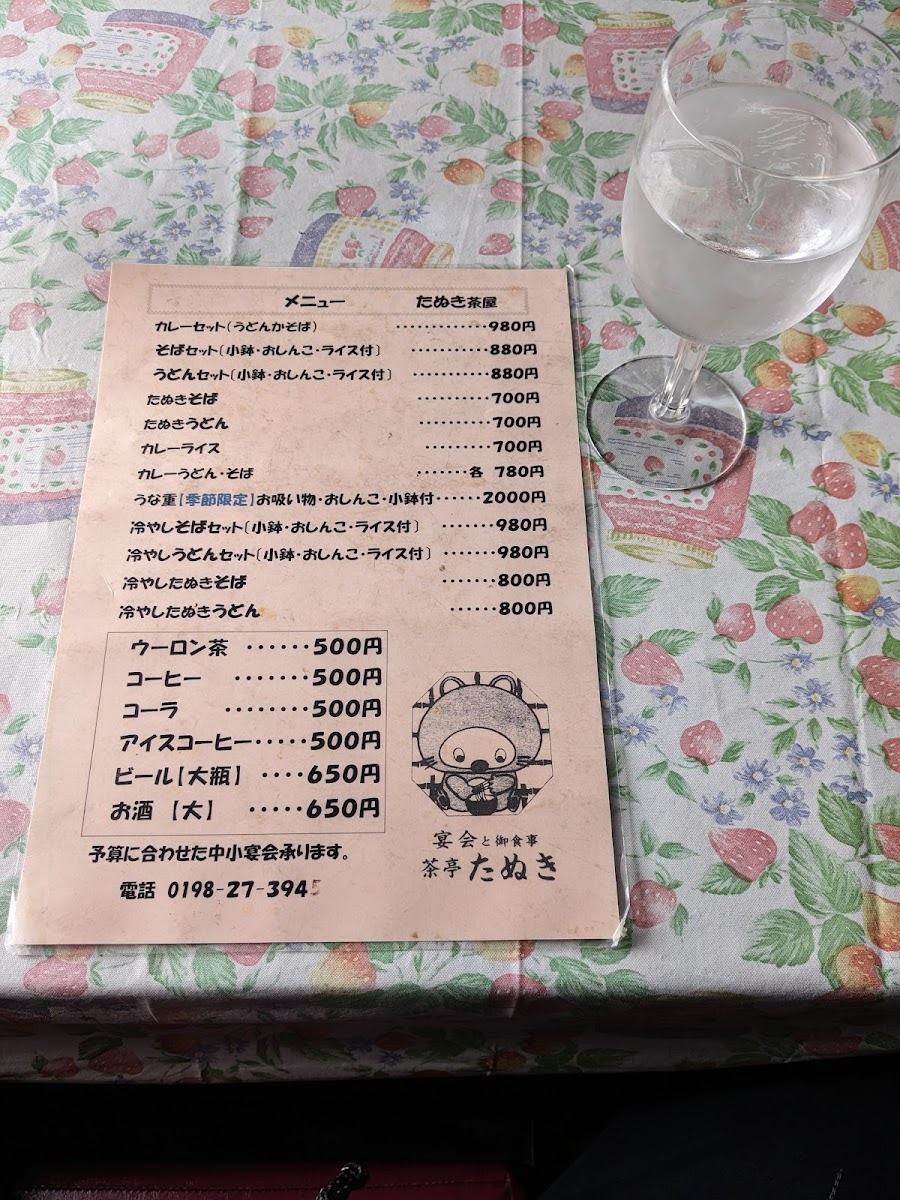 メニュー たぬき茶屋
カレーセット(うどんかそば) ············980円
そばセット〔小鉢・おしんこ・ライス付〕 ···········880円
うどんセット〔小鉢・おしんこ・ライス付〕 ···········880円
たぬきそば ··········700円
たぬきうどん ··········700円
カレーライス ·········700円
カレーうどん・そば ·······各 780円
うな重【季節限定】お吸い物・おしんこ・小鉢付······2000円
冷やしそばセット〔小鉢・おしんこ・ライス付〕 ·······980円
冷やしうどんセット〔小鉢・おしんこ・ライス付〕 ·······980円
冷やしたぬきそば ·······800円
冷やしたぬきうどん ······800円
ウーロン茶 ······500円
コーヒー ·······500円
コーラ ········500円
アイスコーヒー·····500円
ビール【大瓶】 ····650円
お酒 【大】 ·····650円
宴会と御食事
茶亭 たぬき
予算に合わせた中小宴会承ります。
電話 0198-27-3945